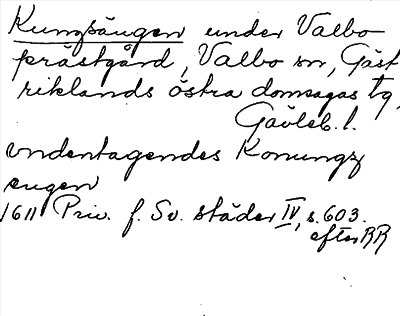 Kungsängen under Valbo
prästgård, Valbo sn, Gäst
riklands östra domsagas tg,
Gävleb. l.
vndentagendes Konungz
eugen
1611 Priv. f. Sv. städer IV, s. 603.
efter RR